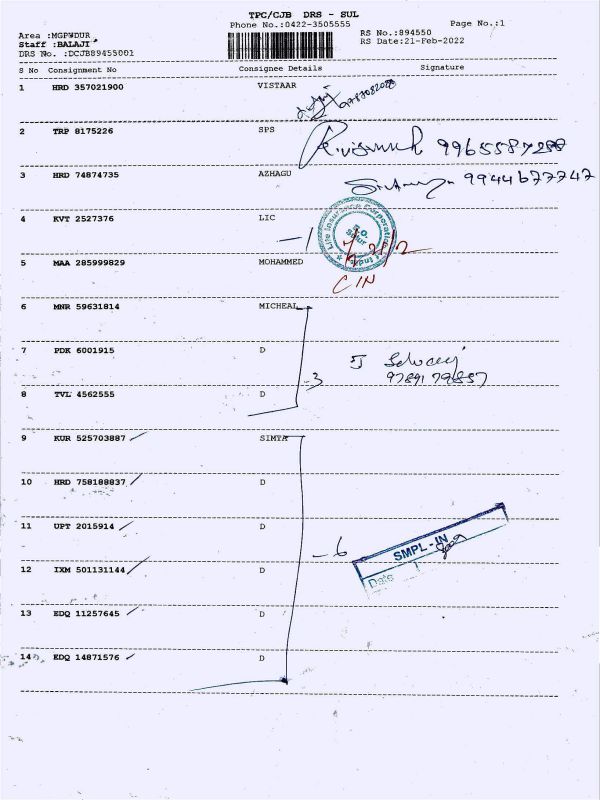 TPC/CJB DRS - SUL
Phone No.:0422-3505555 Page No.:1
Area :MGPWDUR RS No.:894550
Staff :BALAJI RS Date:21-Feb-2022
DRS No. :DCJB89455001
S No Consignment No Consignee Details Signature
1 HRD 357021900 VISTAAR
2 TRP 8175226 SPS 9965587288
3 HRD 74874735 AZHAGU 9944677747
4 KVT 2527376 LIC - 1
Life Insurance Corporation
India
5 MAA 285999829 MOHAMMED
6 MNR 59631814 MICHEAL
7 PDK 6001915 D
-3
9789179857
8 TVL 4562555 D
9 KUR 525703887 SIMTA
10 HRD 758188837 D
11 UPT 2015914 D
- 6
SMPL - IN
Date
12 IXM 501131144 D
13 EDQ 11257645 D
14 EDQ 14871576 D